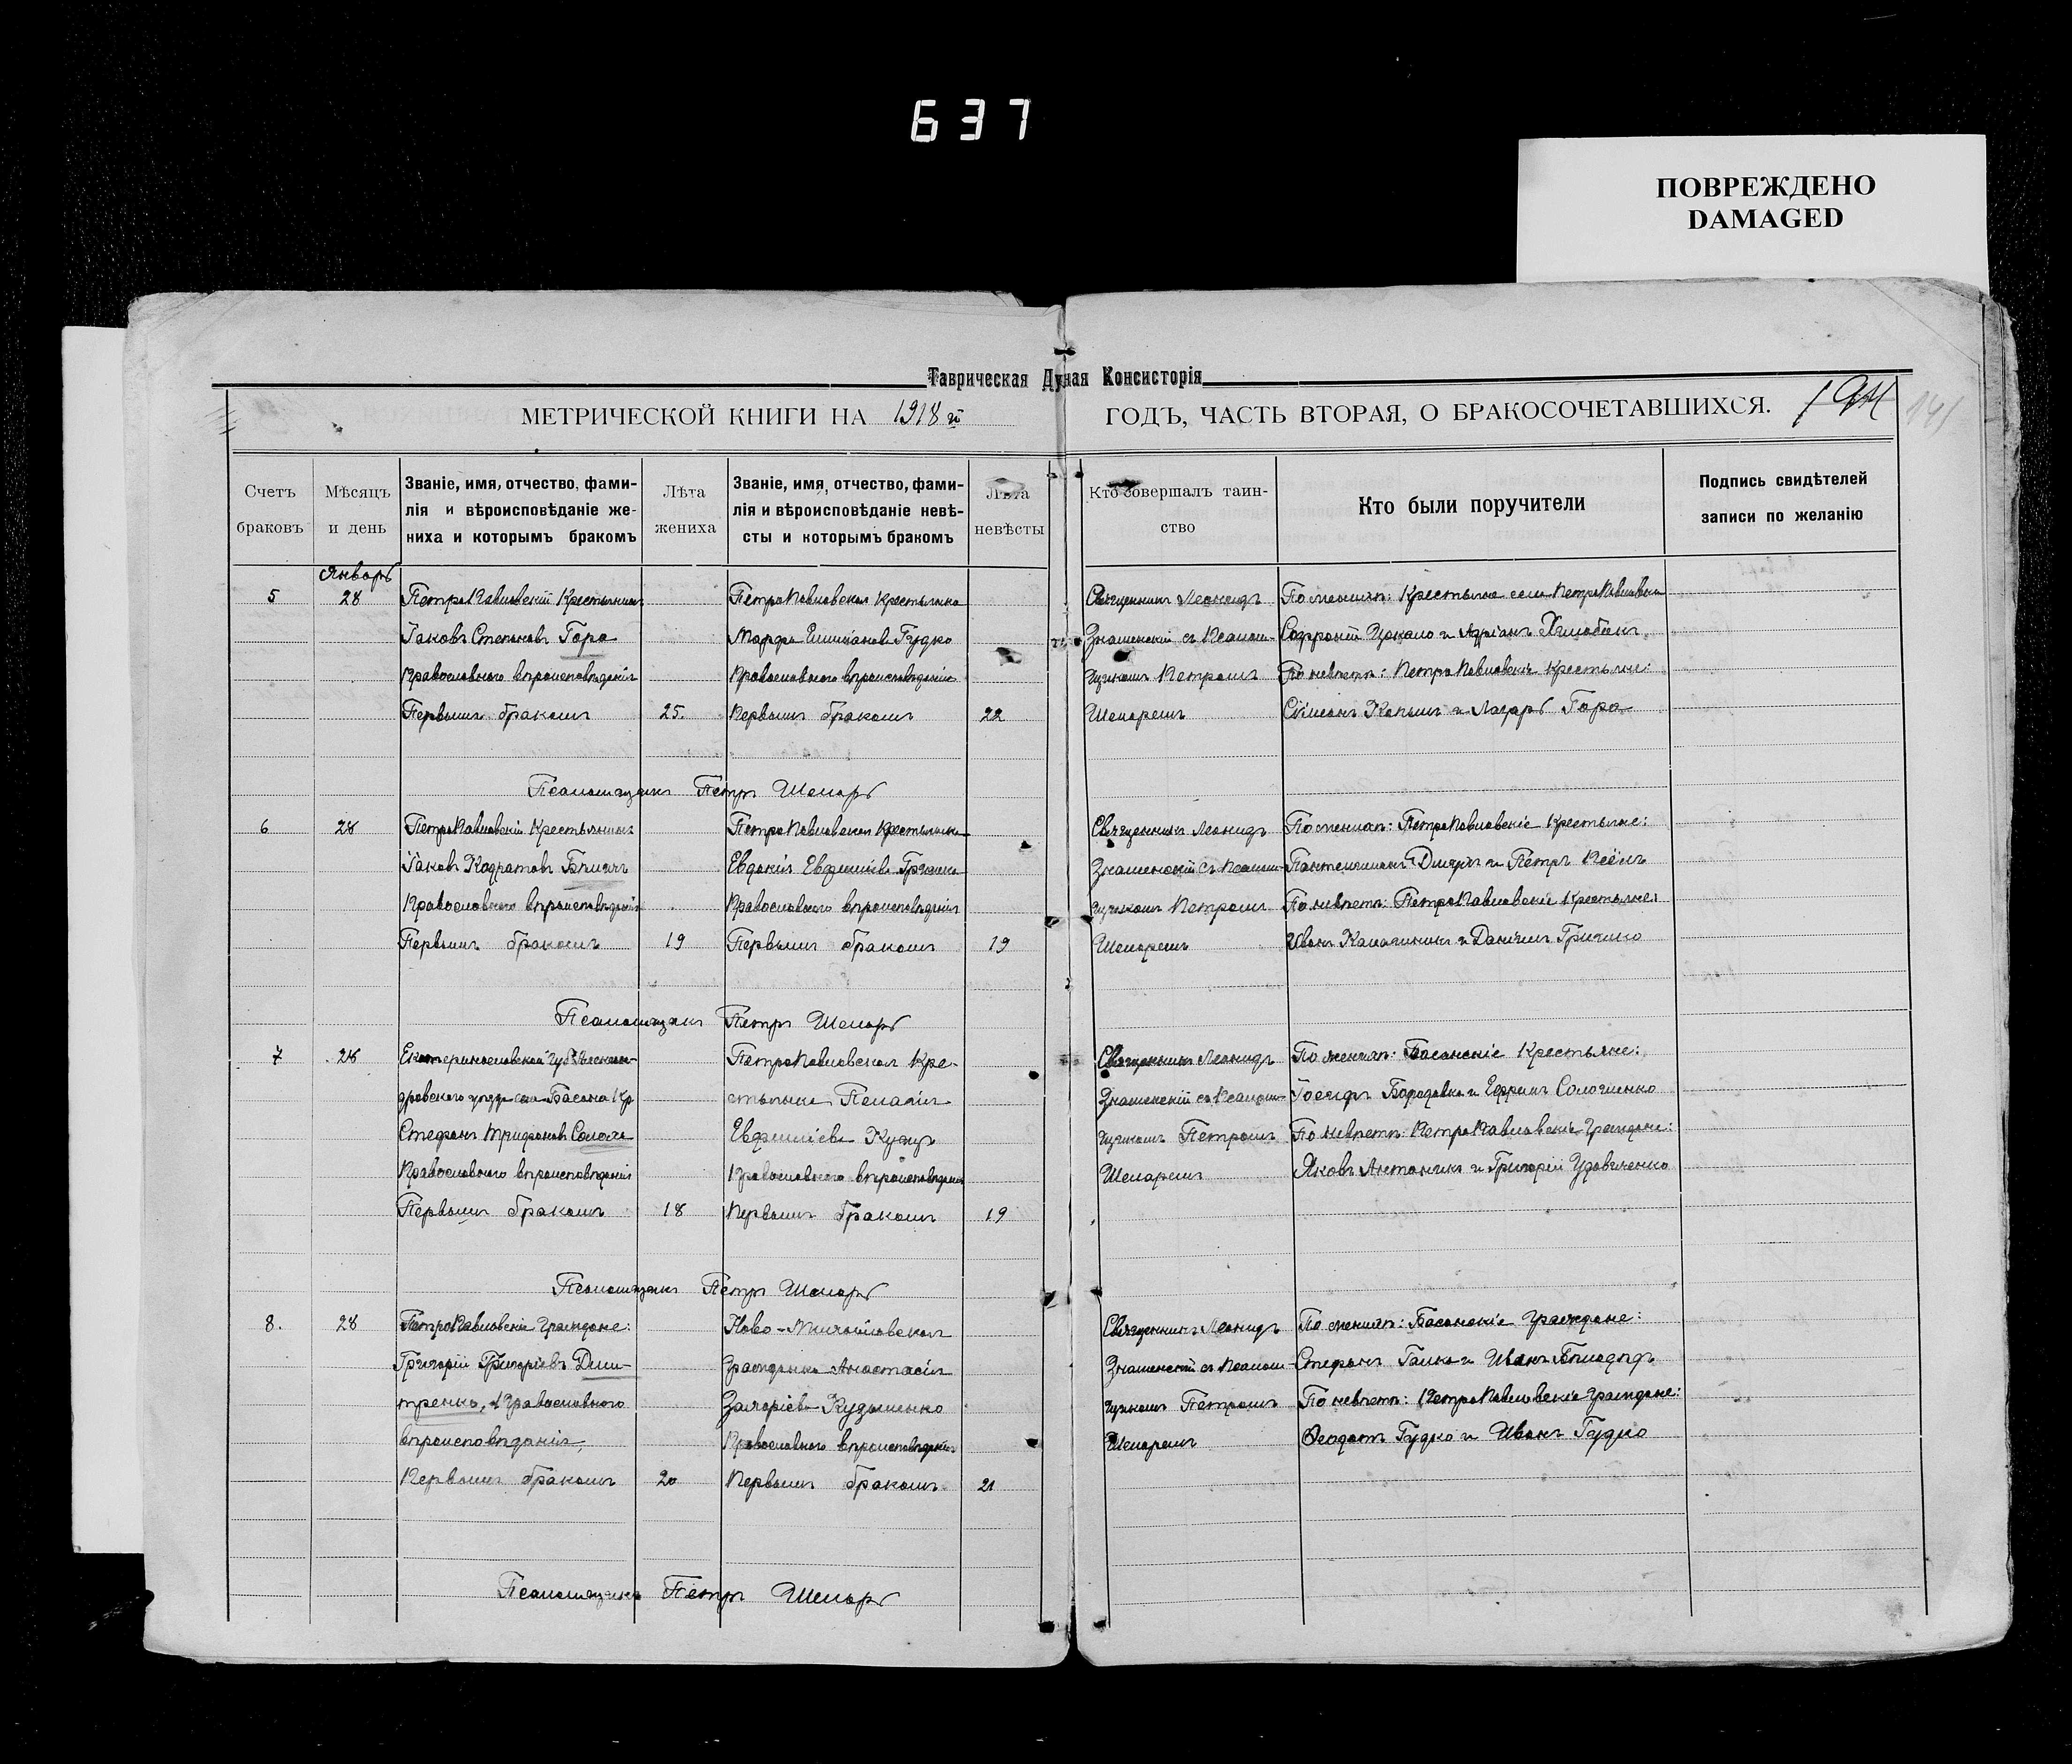 637
ПОВРЕЖДЕНО
DAMAGED
Таврическая Дуная Консисторія
МЕТРИЧЕСКОЙ КНИГИ НА 1918 й ГОДЪ, ЧАСТЬ ВТОРАЯ, О БРАКОСОЧЕТАВШИХСЯ.
141
Счетъ браковъ
Мѣсяцъ и день
Званіе, имя, отчество, фами-
лія и вѣроисповѣданіе же-
ниха и которымъ бракомъ
Лѣта жениха
Званіе, имя, отчество, фами-
лія и вѣроисповѣданіе невѣ-
сты и которымъ бракомъ
Лѣта невѣсты
Кто совершалъ таин-
ство
Кто были поручители
Подпись свидѣтелей
записи по желанію
Январь
5
28
ПетроПавловскій Крестьянинъ
Іаковъ Стефановъ Гора
Православнаго вѣроисповѣданія
Первымъ бракомъ
25.
ПетроПавловская крестьянка
Марфа Гудко
Православнаго вѣроисповѣданія
Первымъ бракомъ
22
Священникъ Леонидъ
Знаменскій съ Псалом-
щикомъ Петромъ
Шепаремъ
По женихѣ: Крестьяне села ПетроПавловки
Софроній Цокало и Адріанъ
По невѣстѣ: ПетроПавловскіе Крестьяне:
и Лазарь Гора
Псаломщикъ Петръ Шепарь
6
28
ПетроПавловскій Крестьянинъ
Іаковъ Кодратовъ
Православнаго вѣроисповѣданія
Первымъ бракомъ
19
ПетроПавловская Крестьянка
Евдокія Евфиміева
Православнаго вѣроисповѣданія
Первымъ бракомъ
19
Священникъ Леонидъ
Знаменскій съ Псалом-
щикомъ Петромъ
Шепаремъ
По женихѣ: ПетроПавловскіе Крестьяне:
Пантелеимонъ и Петръ
По невѣстѣ: ПетроПавловскіе Крестьяне:
Иванъ и Даніилъ
Псаломщикъ Петръ Шепарь
7
28
Екатеринославской Губ. Александ-
ровскаго уѣзда села Басань Кр.
Стефанъ Трифоновъ Солоха
Православнаго вѣроисповѣданія
Первымъ бракомъ
18
ПетроПавловская Кре-
стьянка Пелагія
Евфиміева Куць
Православнаго вѣроисповѣданія
Первымъ бракомъ
19
Священникъ Леонидъ
Знаменскій съ Псалом-
щикомъ Петромъ
Шепаремъ
По женихѣ: Басанскіе Крестьяне:
Іосифъ Бородавка и Ефремъ
По невѣстѣ: ПетроПавловскіе Граждане:
Яковъ Антоникъ и Григорій Удовиченко
Псаломщикъ Петръ Шепарь
8.
28
ПетроПавловскіе Граждане:
Григорій Григоріевъ Дми-
тренко, Православнаго
вѣроисповѣданія,
Первымъ бракомъ
20
Ново-Михайловская
гражданка Анастасія
Захаріева Кузьменко
Православнаго вѣроисповѣданія
Первымъ бракомъ
21
Священникъ Леонидъ
Знаменскій съ Псалом-
щикомъ Петромъ
Шепаремъ
По женихѣ: Басанскіе Граждане:
Стефанъ Галка и Иванъ
По невѣстѣ: ПетроПавловскіе Граждане:
Ѳеодотъ Гудко и Иванъ Гудко
Псаломщикъ Петръ Шепарь